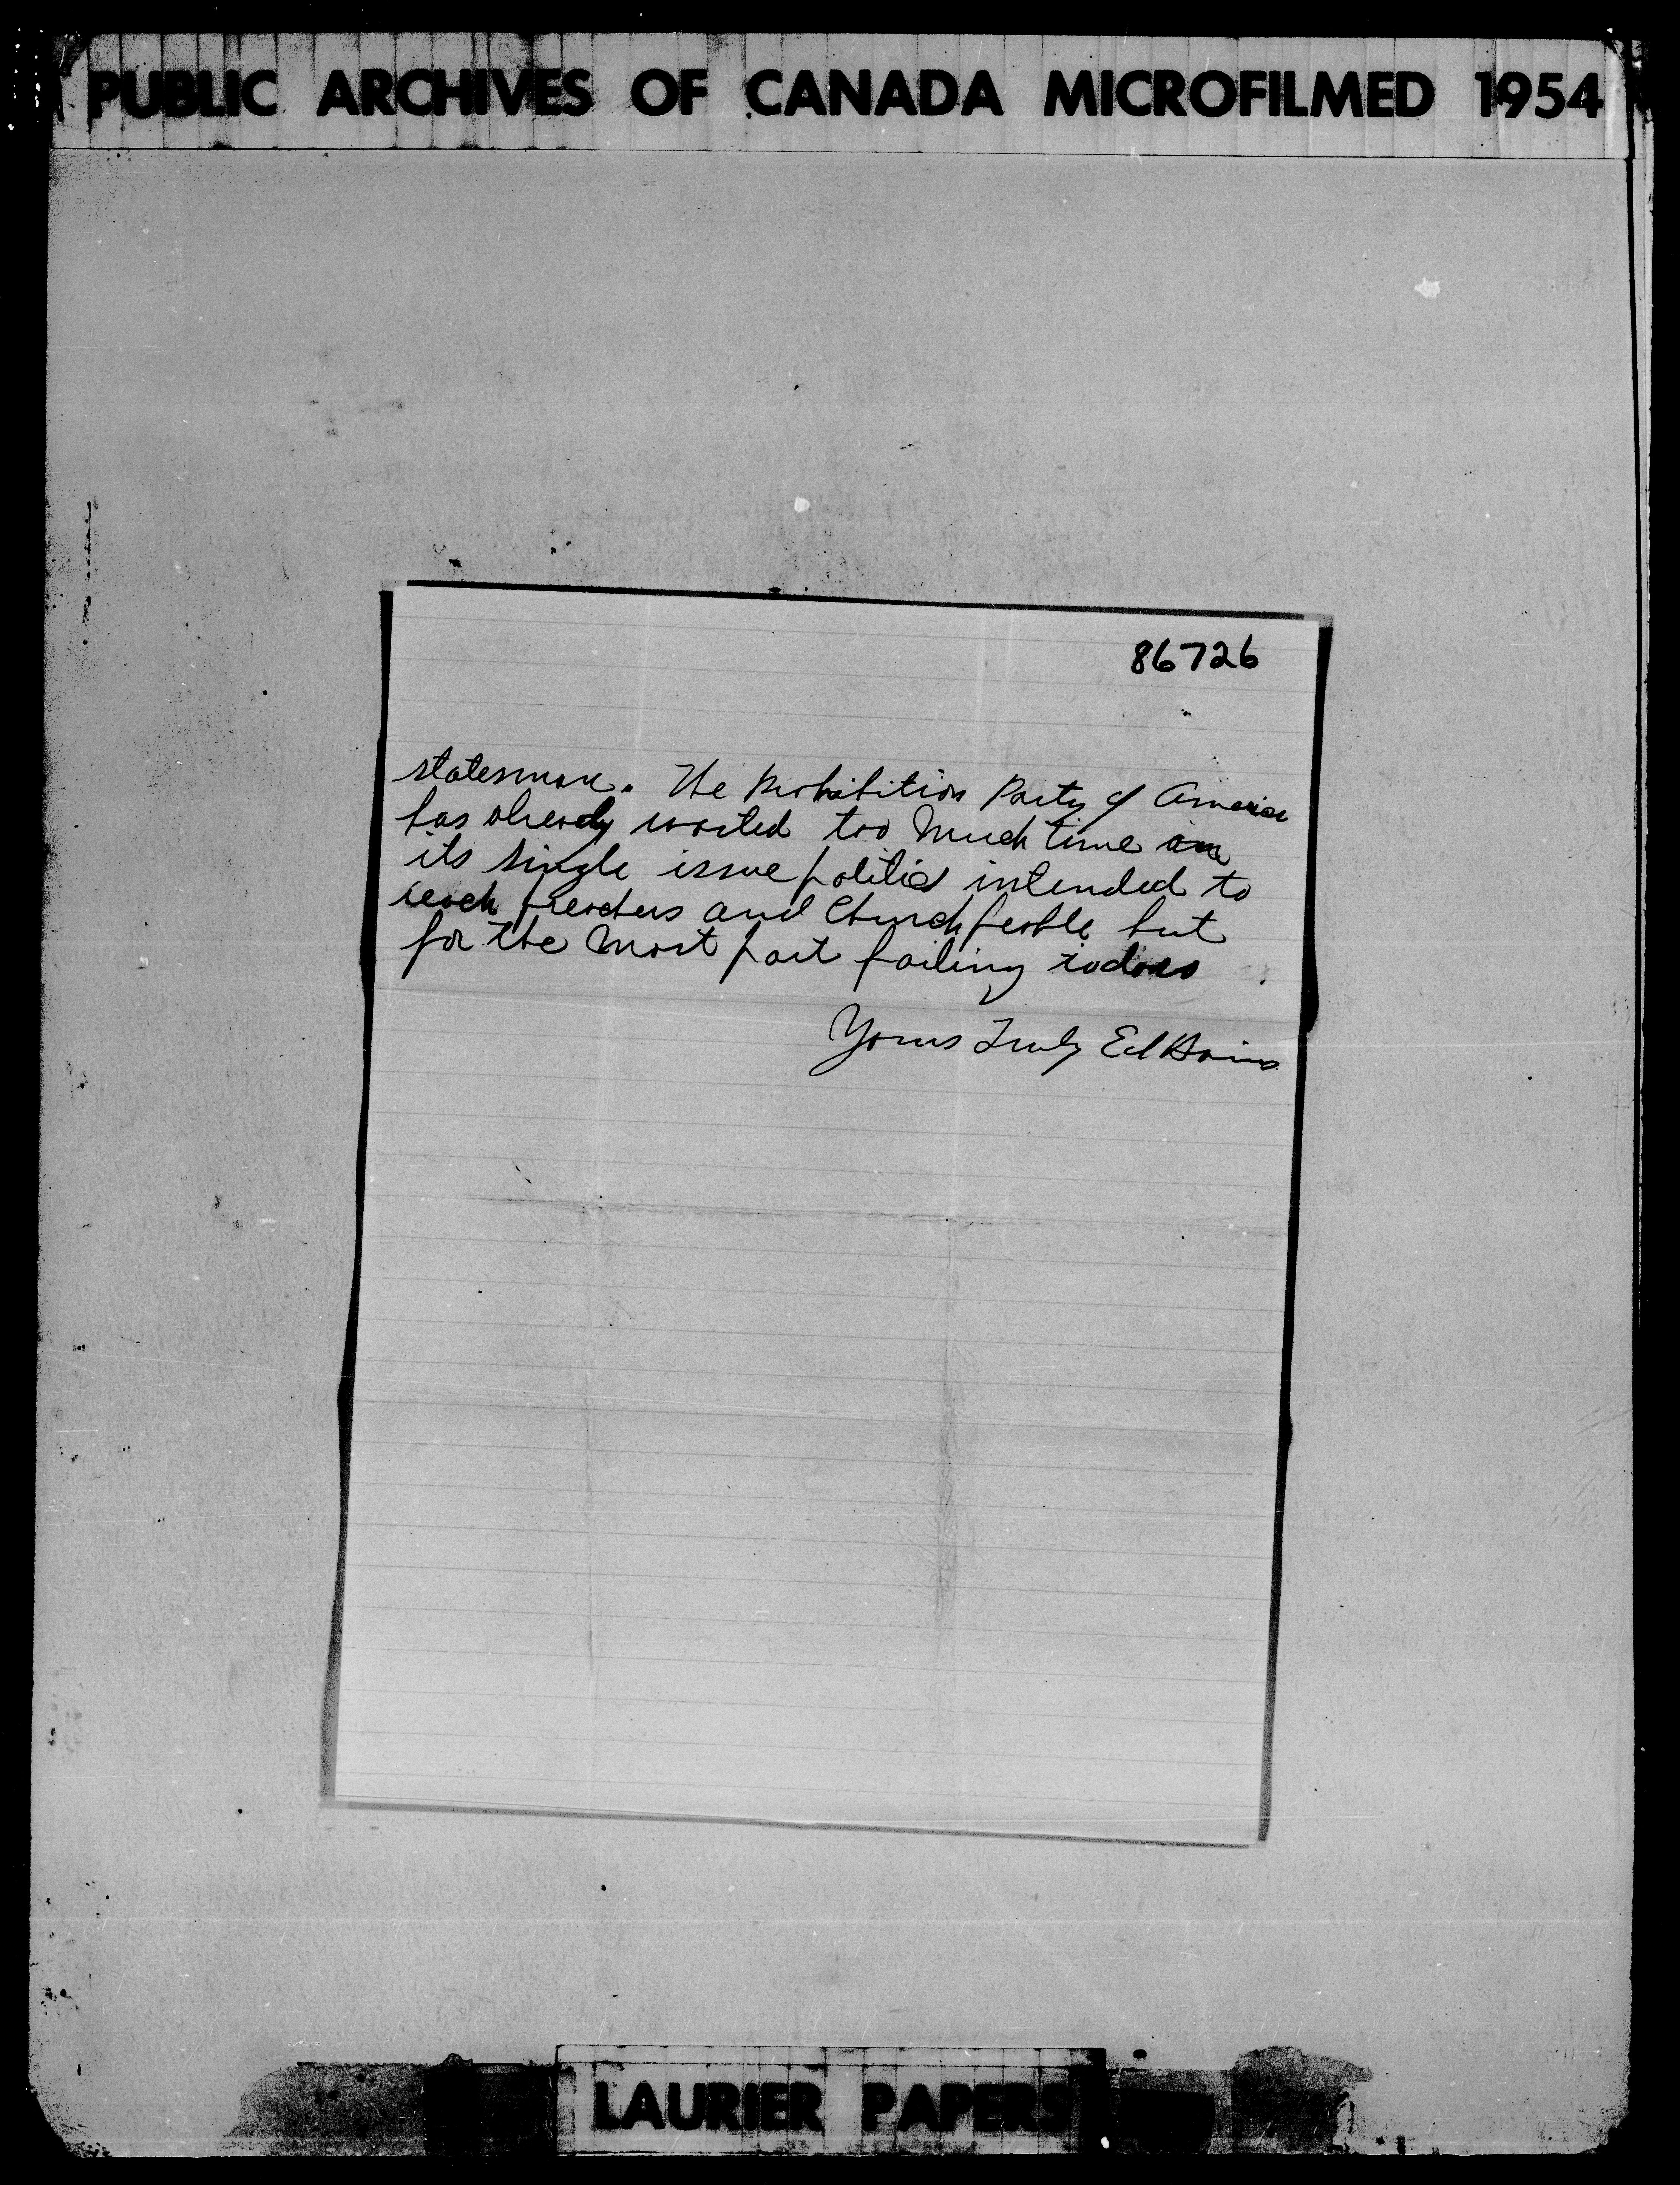 PUBLIC ARCHIVES OF CANADA MICROFILMED 1954
86726
statesman. The Prohibition Party of America
has already wasted too much time on
its single issue politics intended to
reach preachers and Church people but
for the most part failing to do so
Yours Truly Ed
LAURIER PAPERS